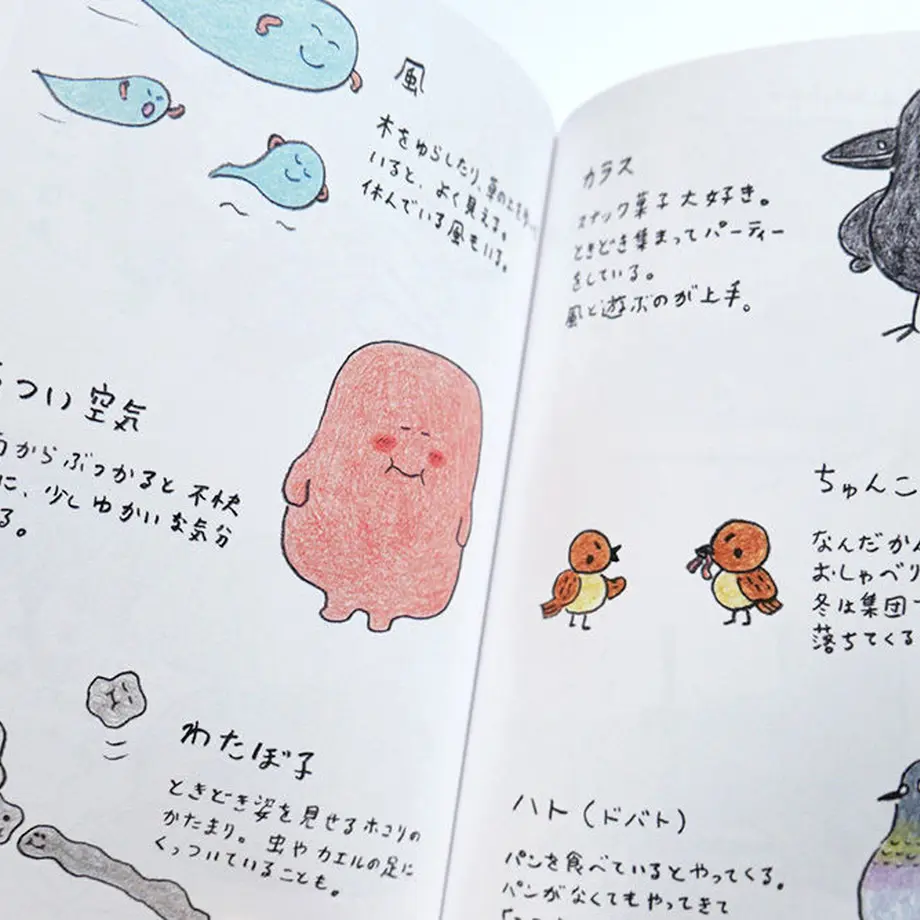 風
木をゆらしたり、草の上を
いると、よく見える。
休んでいる風もいる。
つい空気
からぶつかると不快
に、少しゆかいな気分
る。
わたぼ子
ときどき姿を見せるホコリの
かたまり。虫やカエルの足に
くっついていることも。
カラス
スナック菓子大好き。
ときどき集まってパーティー
をしている。
風と遊ぶのが上手。
ちゅんこ
なんだか
おしゃべり
冬は集団
落ちてくる
ハト(ドバト)
パンを食べているとやってくる。
パンがなくてもやってきて